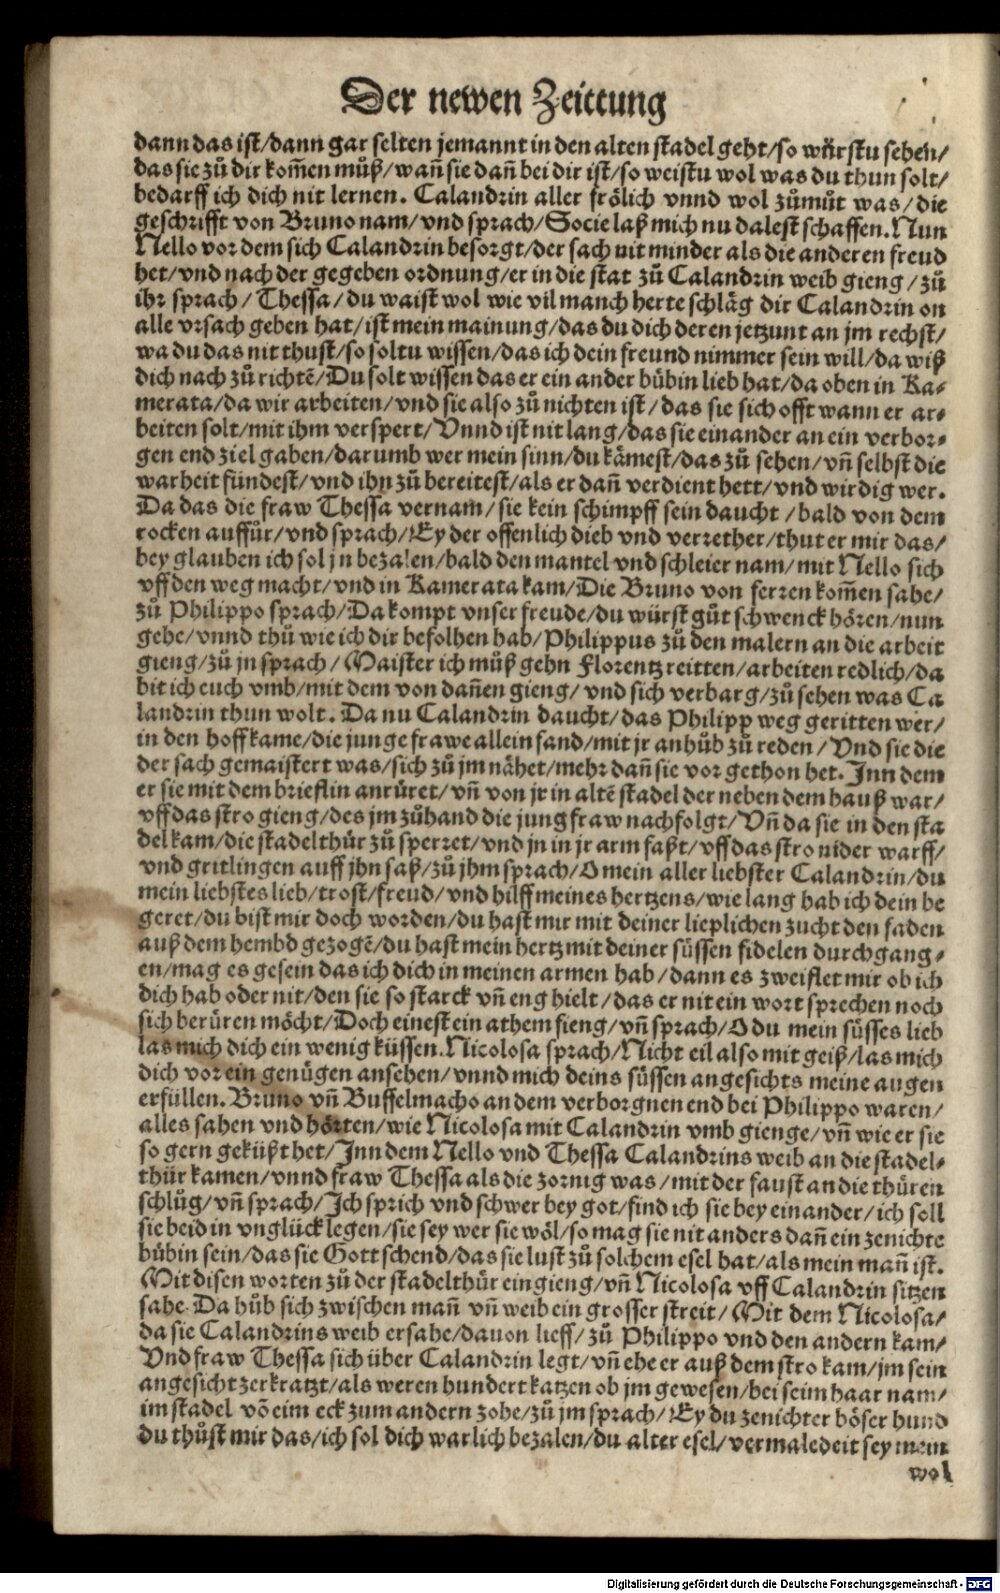 Der newen Zeittung
dann das ist/dann gar selten jemannt in den alten stadel geht/so würstu sehen/
das sie zů dir kom̃en můß/wañ sie dañ bei dir ist/so weistu wol was du thun solt/
bedarff ich dich nit lernen. Calandrin aller frölich vnnd wol zůmůt was/die
geschrifft von Bruno nam/vnd sprach/Socie laß mich nu dalest schaffen. Nun
Nello vor dem sich Calandrin besorgt/der sach nit minder als die anderen freud
het/vnd nach der gegeben ordnung/er in die stat zů Calandrin weib gieng/zů
ihr sprach/Thessa/du waist wol wie vil manch herte schläg dir Calandrin on
alle vrsach geben hat/ist mein mainung/das du dich deren jetzunt an jm rechst/
wa du das nit thust/so soltu wissen/das ich dein freund nimmer sein will/da wiß
dich nach zů richtẽ/Du solt wissen das er ein ander bübin lieb hat/da oben in Ka-
merata/da wir arbeiten/vnd sie also zů nichten ist/das sie sich offt wann er ar-
beiten solt/mit ihm verspert/Vnnd ist nit lang/das sie einander an ein verbor-
gen end ziel gaben/darumb wer mein sinn/du kämest/das zů sehen/vñ selbst die
warheit fündest/vnd ihn zů bereitest/als er dañ verdient hett/vnd wirdig wer.
Da das die fraw Thessa vernam/sie kein schimpff sein daucht/bald von dem
rocken auffůr/vnd sprach/Ey der offenlich dieb vnd verrether/thut er mir das/
bey glauben ich sol jn bezalen/bald den mantel vnd schleier nam/mit Nello sich
vff den weg macht/vnd in Kamerata kam/Die Bruno von ferren kom̃en sahe/
zů Philippo sprach/Da kompt vnser freude/du würst gůt schwenck hören/nun
gehe/vnnd thů wie ich dir befolhen hab/Philippus zů den malern an die arbeit
gieng/zů jn sprach/Maister ich můß gehn Florentz reitten/arbeiten redlich/da
bit ich euch vmb/mit dem von dañen gieng/vnd sich verbarg/zů sehen was Ca
landrin thun wolt. Da nu Calandrin daucht/das Philipp weg geritten wer/
in den hoff kame/die junge frawe allein fand/mit jr anhůb zů reden/Vnd sie die
der sach gemaistert was/sich zů jm nähet/mehr dañ sie vor gethon het. Inn dem
er sie mit dem brieflin anrüret/vñ von jr in altẽ stadel der neben dem hauß war/
vff das stro gieng/des jm zůhand die jungfraw nachfolgt/Vñ da sie in den sta
del kam/die stadelthür zů sperret/vnd jn in jr arm faßt/vff das stro nider warff/
vnd gritlingen auff jhn saß/zů jhm sprach/O mein aller liebster Calandrin/du
mein liebstes lieb/trost/freud/vnd hilff meines hertzens/wie lang hab ich dein be
geret/du bist mir doch worden/du hast mir mit deiner lieplichen zucht den faden
auß dem hembd gezogẽ/du hast mein hertz mit deiner süssen fidelen durchgang-
en/mag es gesein das ich dich in meinen armen hab/dann es zweiflet mir ob ich
dich hab oder nit/den sie so starck vñ eng hielt/das er nit ein wort sprechen noch
sich berüren möcht/Doch einest ein athem fieng/vñ sprach/O du mein süsses lieb
las mich dich ein wenig küssen. Nicolosa sprach/Nicht eil also mit geiß/las mich
dich vor ein genügen ansehen/vnnd mich deins süssen angesichts meine augen
erfüllen. Bruno vñ Buffelmacho an dem verborgnen end bei Philippo waren/
alles sahen vnd hörten/wie Nicolosa mit Calandrin vmb gienge/vñ wie er sie
so gern geküßt het/Inn dem Nello vnd Thessa Calandrins weib an die stadel-
thür kamen/vnnd fraw Thessa als die zornig was/mit der faust an die thüren
schlůg/vñ sprach/Ich sprich vnd schwer bey got/find ich sie bey einander/ich soll
sie beid in vnglück legen/sie sey wer sie wöl/so mag sie nit anders dañ ein zenichte
bübin sein/das sie Gott schend/das sie lust zů solchem esel hat/als mein mañ ist.
Mit disen worten zů der stadelthür eingieng/vñ Nicolosa vff Calandrin sitzen
sahe. Da hůb sich zwischen mañ vñ weib ein grosser streit/Mit dem Nicolosa/
da sie Calandrins weib ersahe/dauon lieff/zů Philippo vnd den andern kam/
Vnd fraw Thessa sich über Calandrin legt/vñ ehe er auß dem stro kam/jm sein
angesicht zerkratzt/als weren hundert katzen ob jm gewesen/bei seim haar nam/
im stadel võ eim eck zum andern zohe/zů jm sprach/Ey du zenichter böser hund
du thůst mir das/ich sol dich warlich bezalen/du alter esel/vermaledeit sey mein
wol
Digitalisierung gefördert durch die Deutsche Forschungsgemeinschaft - DFG